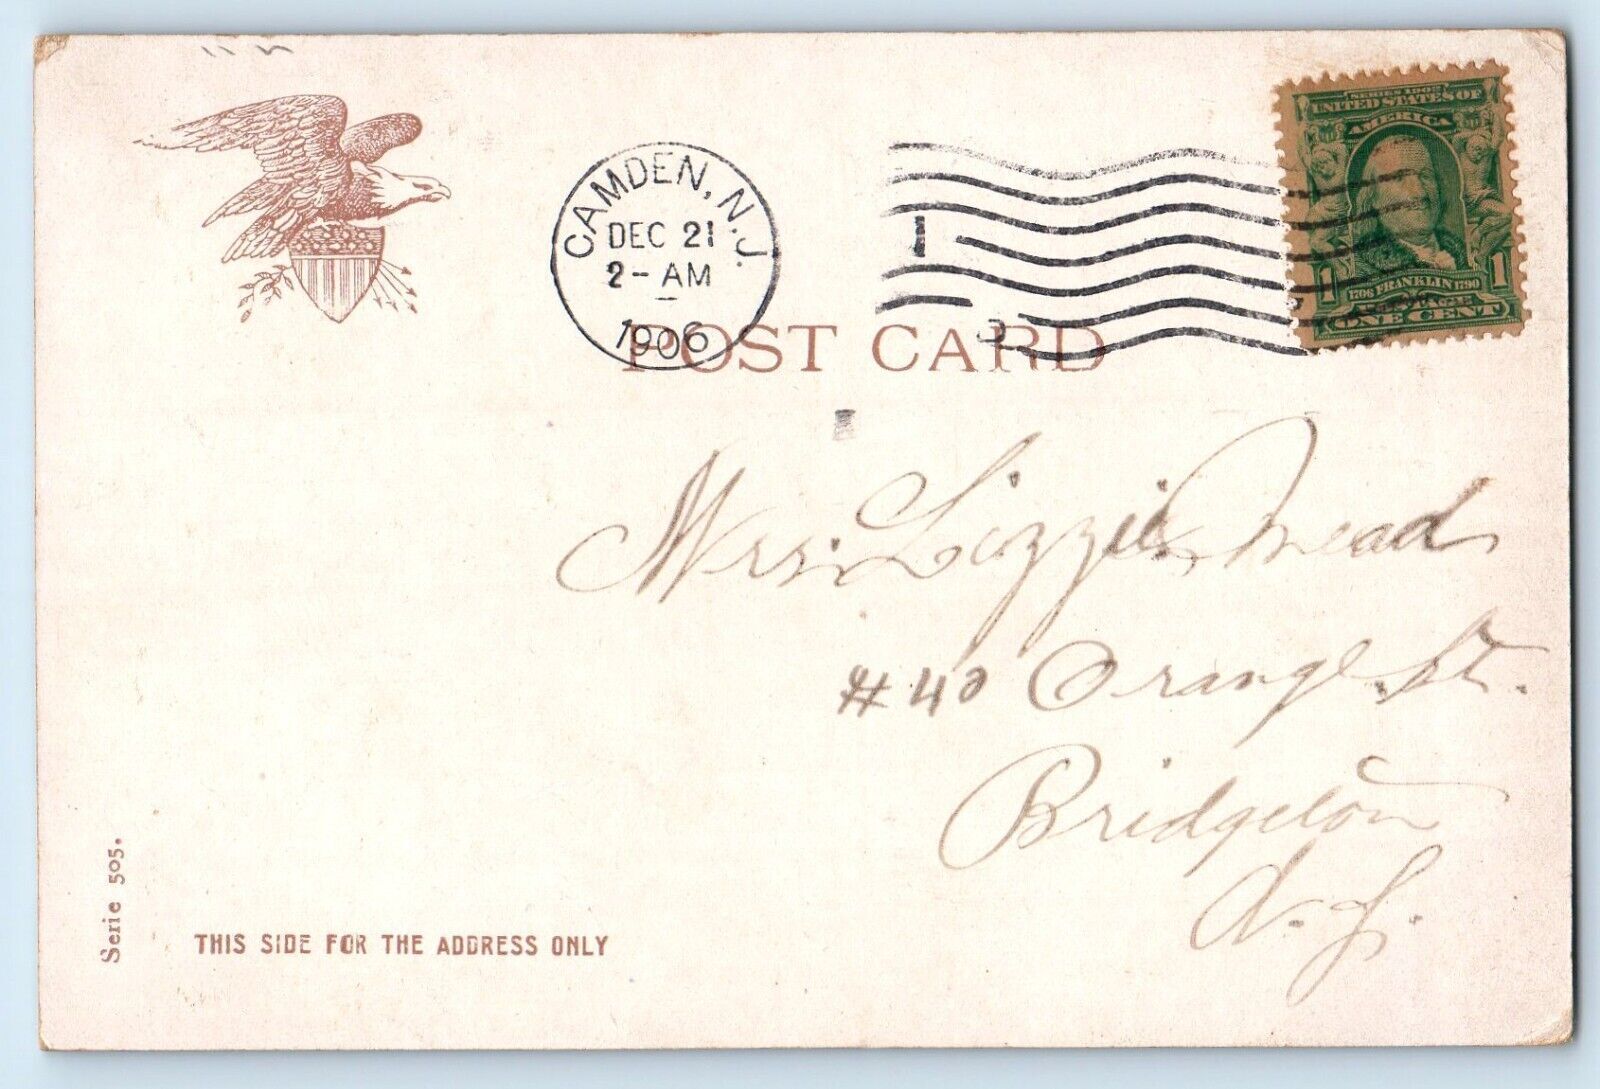 CAMDEN, N.J.
DEC 21
2- AM
1906
1
SERIES 1902
UNITED STATES OF
AMERICA
1706 FRANKLIN 1790
1 1
POSTAGE
ONE CENT
POST CARD
Mrs. Lizzie Mead
#40 Orange St.
Bridgeton
N. J.
Serie 505.
THIS SIDE FOR THE ADDRESS ONLY